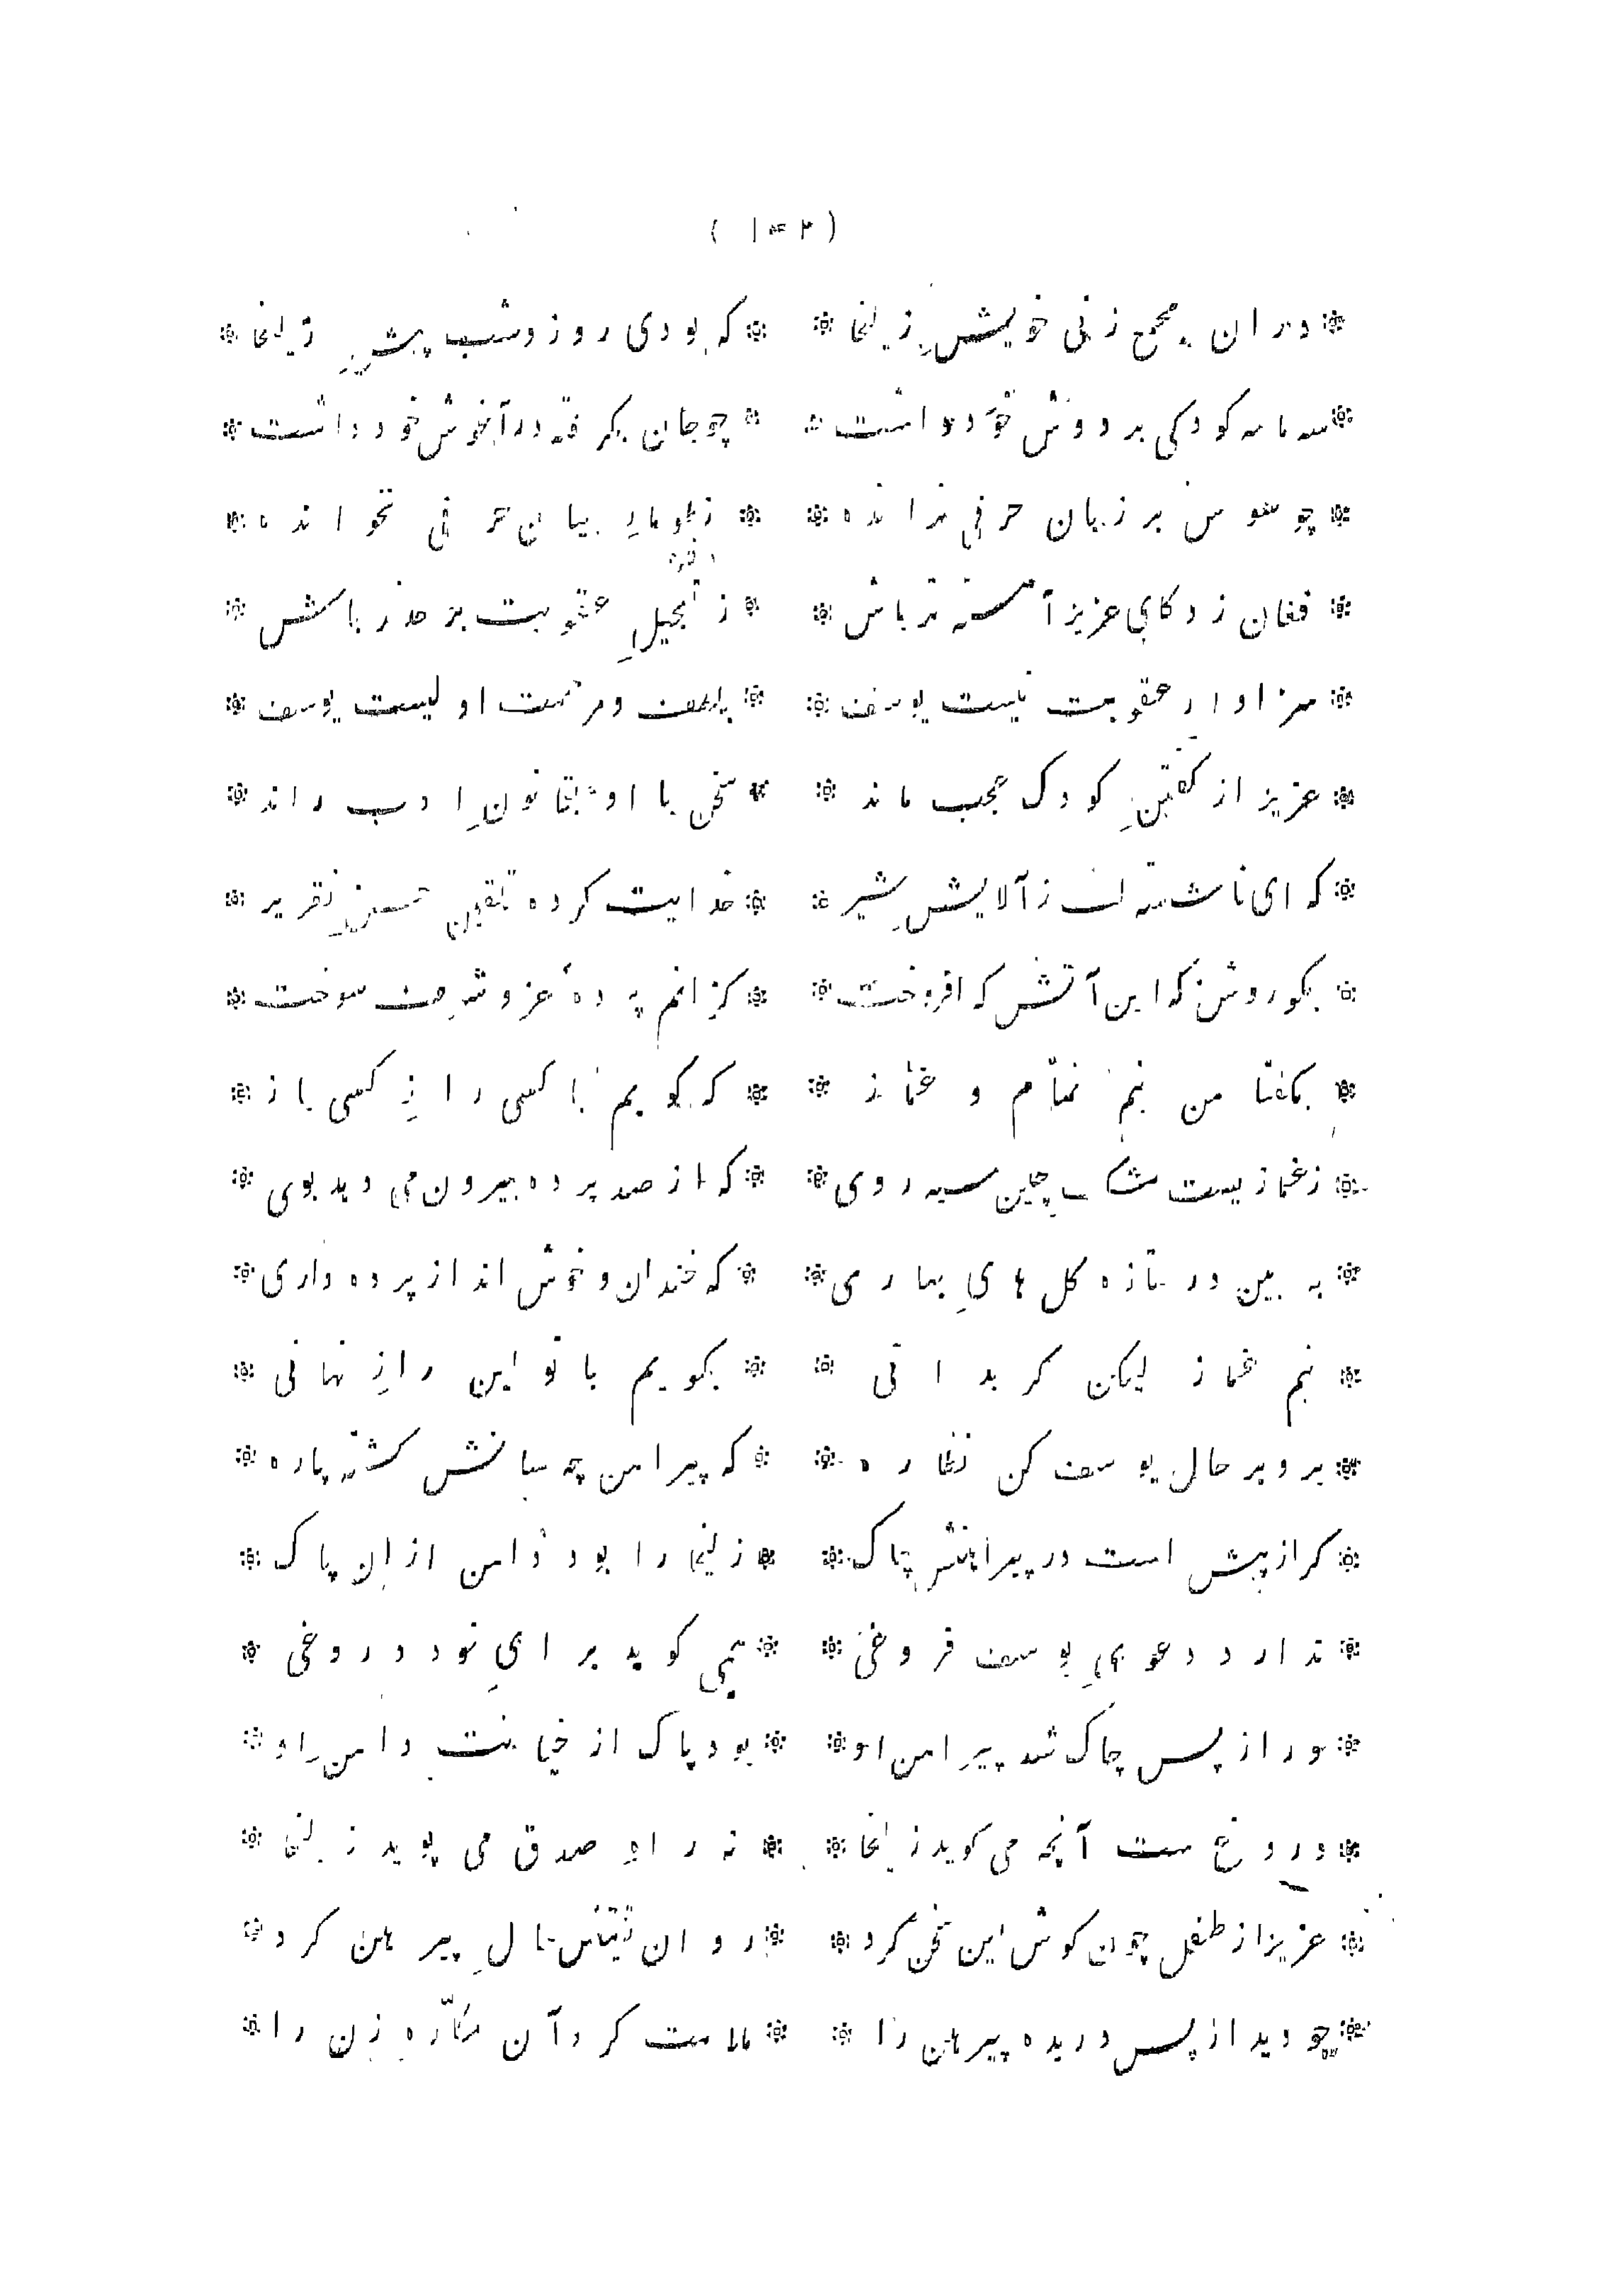 ( ۱۰۲ )
* دران مجمع زنی خویشِ زلیخا * * که بودی روز و شب پیشِ زلیخا *
* سه ماهه کودکی بر دوش خود داشت * * چو جان بگرفته در آغوش خود داشت *
* چو سوسن بر زبان حرفی نرانده * * ز طومارِ بیان حرفی نخوانده *
* فغان زد کای عزیز آهسته تر باش * * ز تعجیلِ عقوبت بر حذر باش *
* سزاوار عقوبت نیست یوسف * * بلطف و مرحمت اولیست یوسف *
* عزیز از گفتنِ کودک عجب ماند * * سخن با او بقانونِ ادب راند *
* که ای ناشسته لب ز آلایشِ شیر * * خدایت کرده تلقین حسنِ تقریر *
* بگو روشن که این آتش که افروخت * * کزانم پردهٔ عز و شرف سوخت *
* بگفتا من نیم نمّام و غمّاز * * که گویم با کسی رازِ کسی باز *
* ز غمازیست مشکِ چین سیه روی * * که از صد پرده بیرون می دهد بوی *
* به بین در تازه گل هایِ بهاری * * که خندان و خوش اند از پرده داری *
* نیم غماز لیکن گر بدانی * * بگویم با تو این رازِ نهانی *
* برو بر حال یوسف کن نظاره * * که پیراهن چه سانش گشته پاره *
* گر از پیش است در پیراهنش چاک * * زلیخا را بود دامن ازان پاک *
* ندارد دعویِ یوسف فروغی * * همی گوید برایِ خود دروغی *
* ور از پس چاک شد پیراهن او * * بود پاک از خیانت دامن او *
* دروغ ست آنچه می گوید زلیخا * * نه راهِ صدق می پوید زلیخا *
* عزیز از طفل چون گوش این سخن کرد * * روان تفتیش حالِ پیرهن کرد *
* چو دید از پس دریده پیرهن را * * ملامت کرد آن مکّاره زن را *